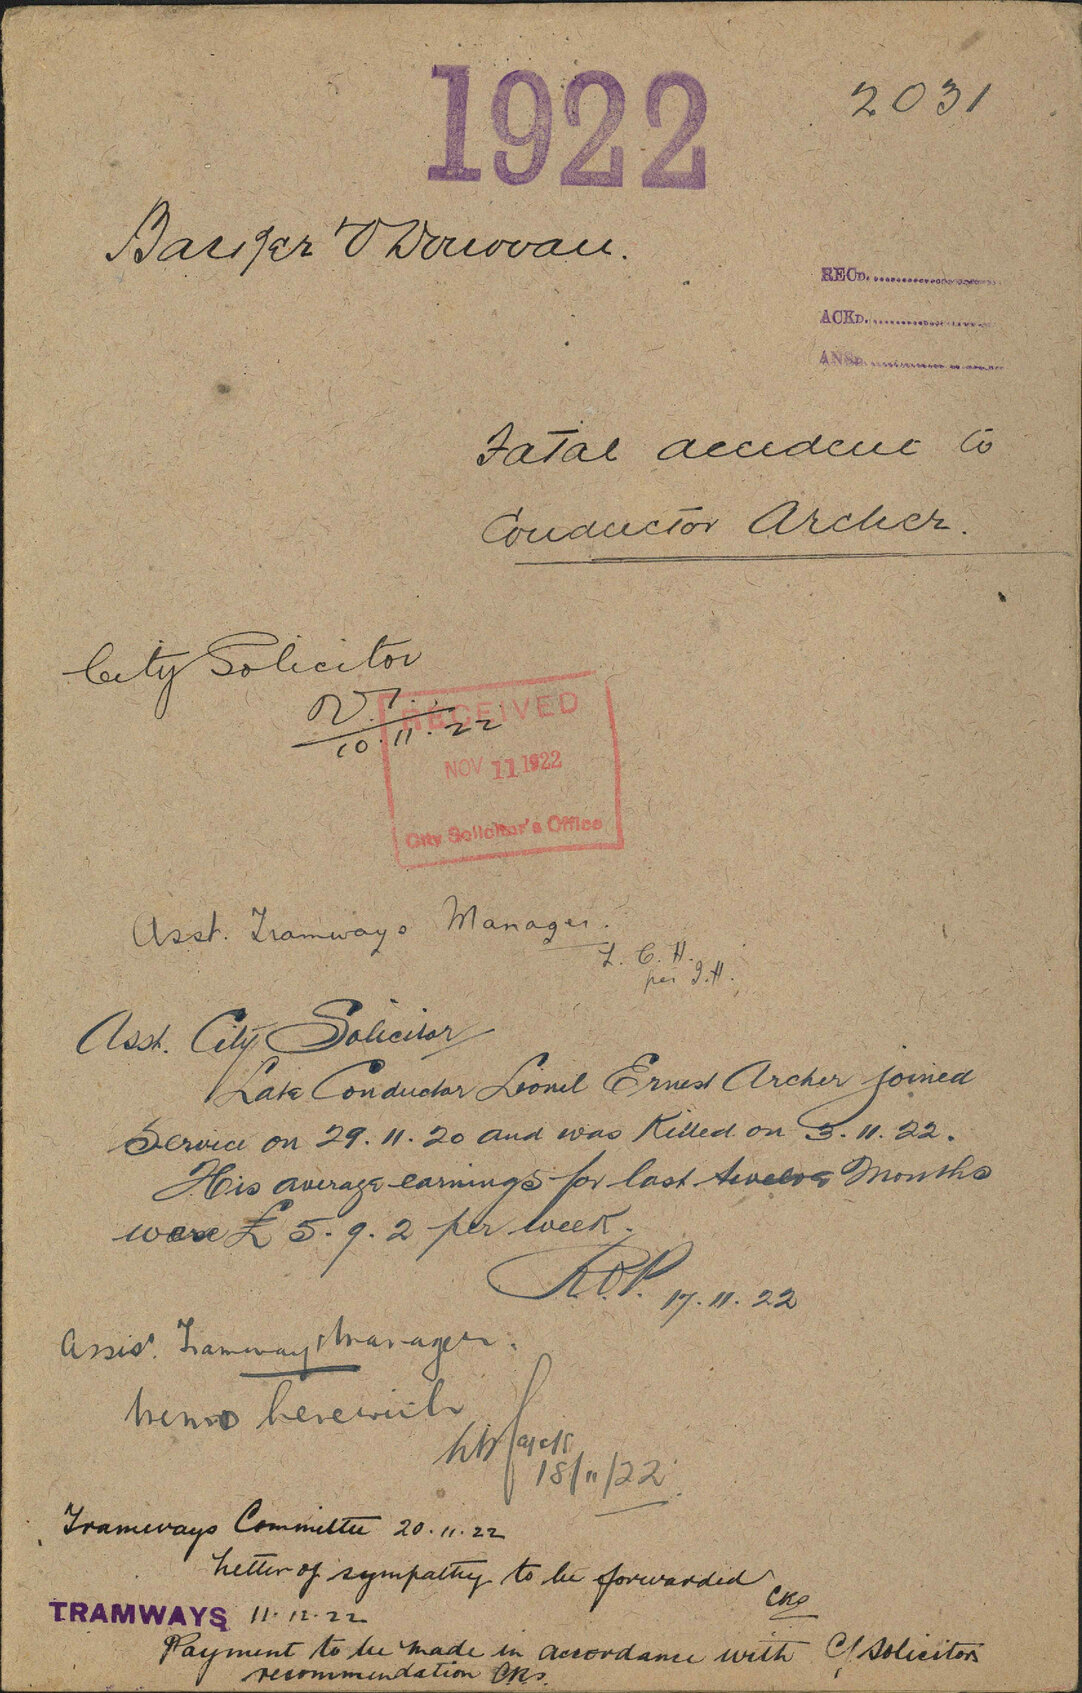 1922
2031
Barger O'Donovan.
RECD.
ACKD.
ANSD.
Fatal accident to
Conductor Archer.
City Solicitor
10.11.22
RECEIVED
NOV 11 1922
City Solicitor's Office
Asst. Tramways Manager.
per J.H.
Asst. City Solicitor
Late Conductor Lionel Ernest Archer joined
Service on 29.11.20 and was Killed on 3.11.22.
His average earnings for last twelve Months
were £5.9.2 per week.
17.11.22
Assist. Tramways Manager.
Memo herewith
18/11/22
Tramways Committee 20.11.22
Letter of sympathy to be forwarded
CKs
TRAMWAYS 11.12.22
Payment to be made in accordance with C/Solicitors
recommendation CKs.